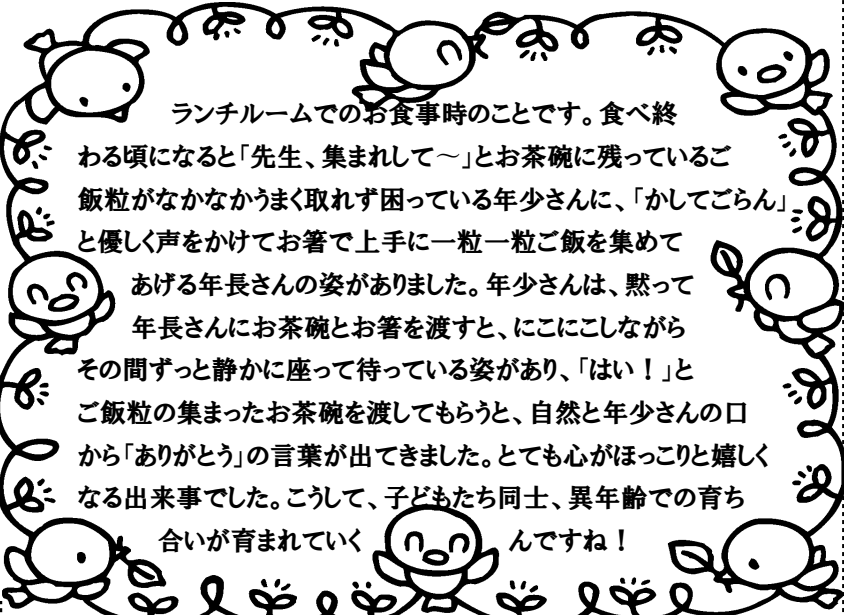 ランチルームでのお食事時のことです。食べ終
わる頃になると「先生、集まれして～」とお茶碗に残っているご
飯粒がなかなかうまく取れず困っている年少さんに、「かしてごらん」
と優しく声をかけてお箸で上手に一粒一粒ご飯を集めて
あげる年長さんの姿がありました。年少さんは、黙って
年長さんにお茶碗とお箸を渡すと、にこにこしながら
その間ずっと静かに座って待っている姿があり、「はい！」と
ご飯粒の集まったお茶碗を渡してもらうと、自然と年少さんの口
から「ありがとう」の言葉が出てきました。とても心がほっこりと嬉しく
なる出来事でした。こうして、子どもたち同士、異年齢での育ち
合いが育まれていく んですね！